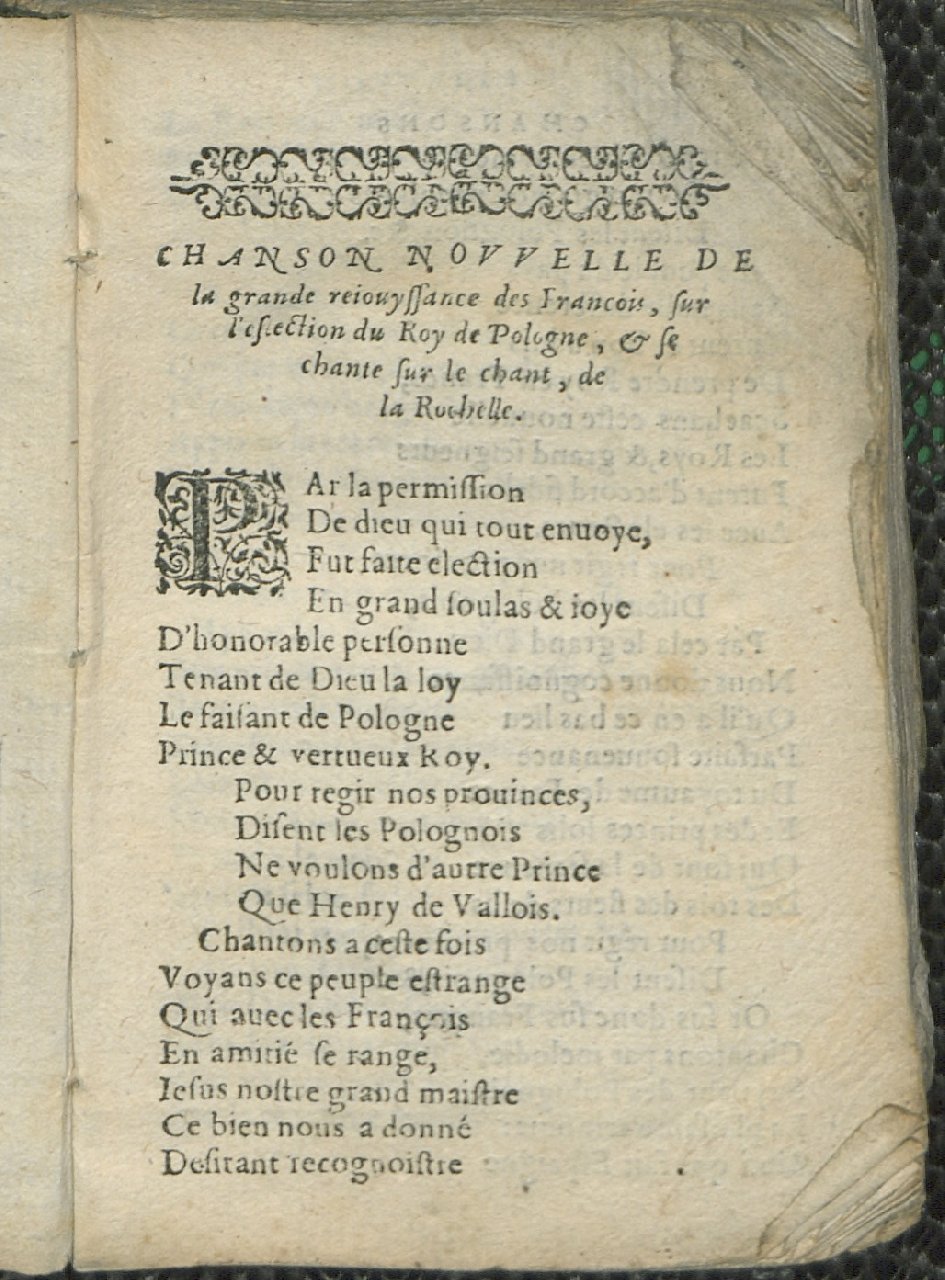 CHANSON NOVVELLE DE
la grande reiouyſſance des Francois, ſur
l'eſlection du Roy de Pologne, & ſe
chante ſur le chant, de
la Rochelle.
PAr la permiſſion
De dieu qui tout enuoye,
Fut faite election
En grand ſoulas & ioye
D'honorable perſonne
Tenant de Dieu la loy
Le faiſant de Pologne
Prince & vertueux Roy.
Pour regir nos prouinces,
Diſent les Polognois
Ne voulons d'autre Prince
Que Henry de Vallois.
Chantons a ceſte fois
Voyans ce peuple eſtrange
Qui auec les François
En amitié ſe range,
Ieſus noſtre grand maiſtre
Ce bien nous a donné
Deſirant recognoiſtre